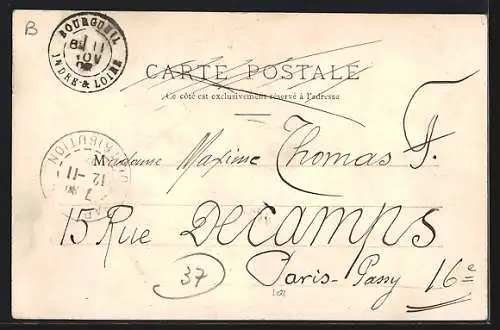 B
BOURGUEIL
8E 11
NOV
INDRE & LOIRE
CARTE POSTALE
Ce côté est exclusivement réservé à l'adresse
Madame Maxime Thomas F.
DISTRIBUTION
12-11
PARIS
15 Rue Decamps
37
Paris-Passy 16e